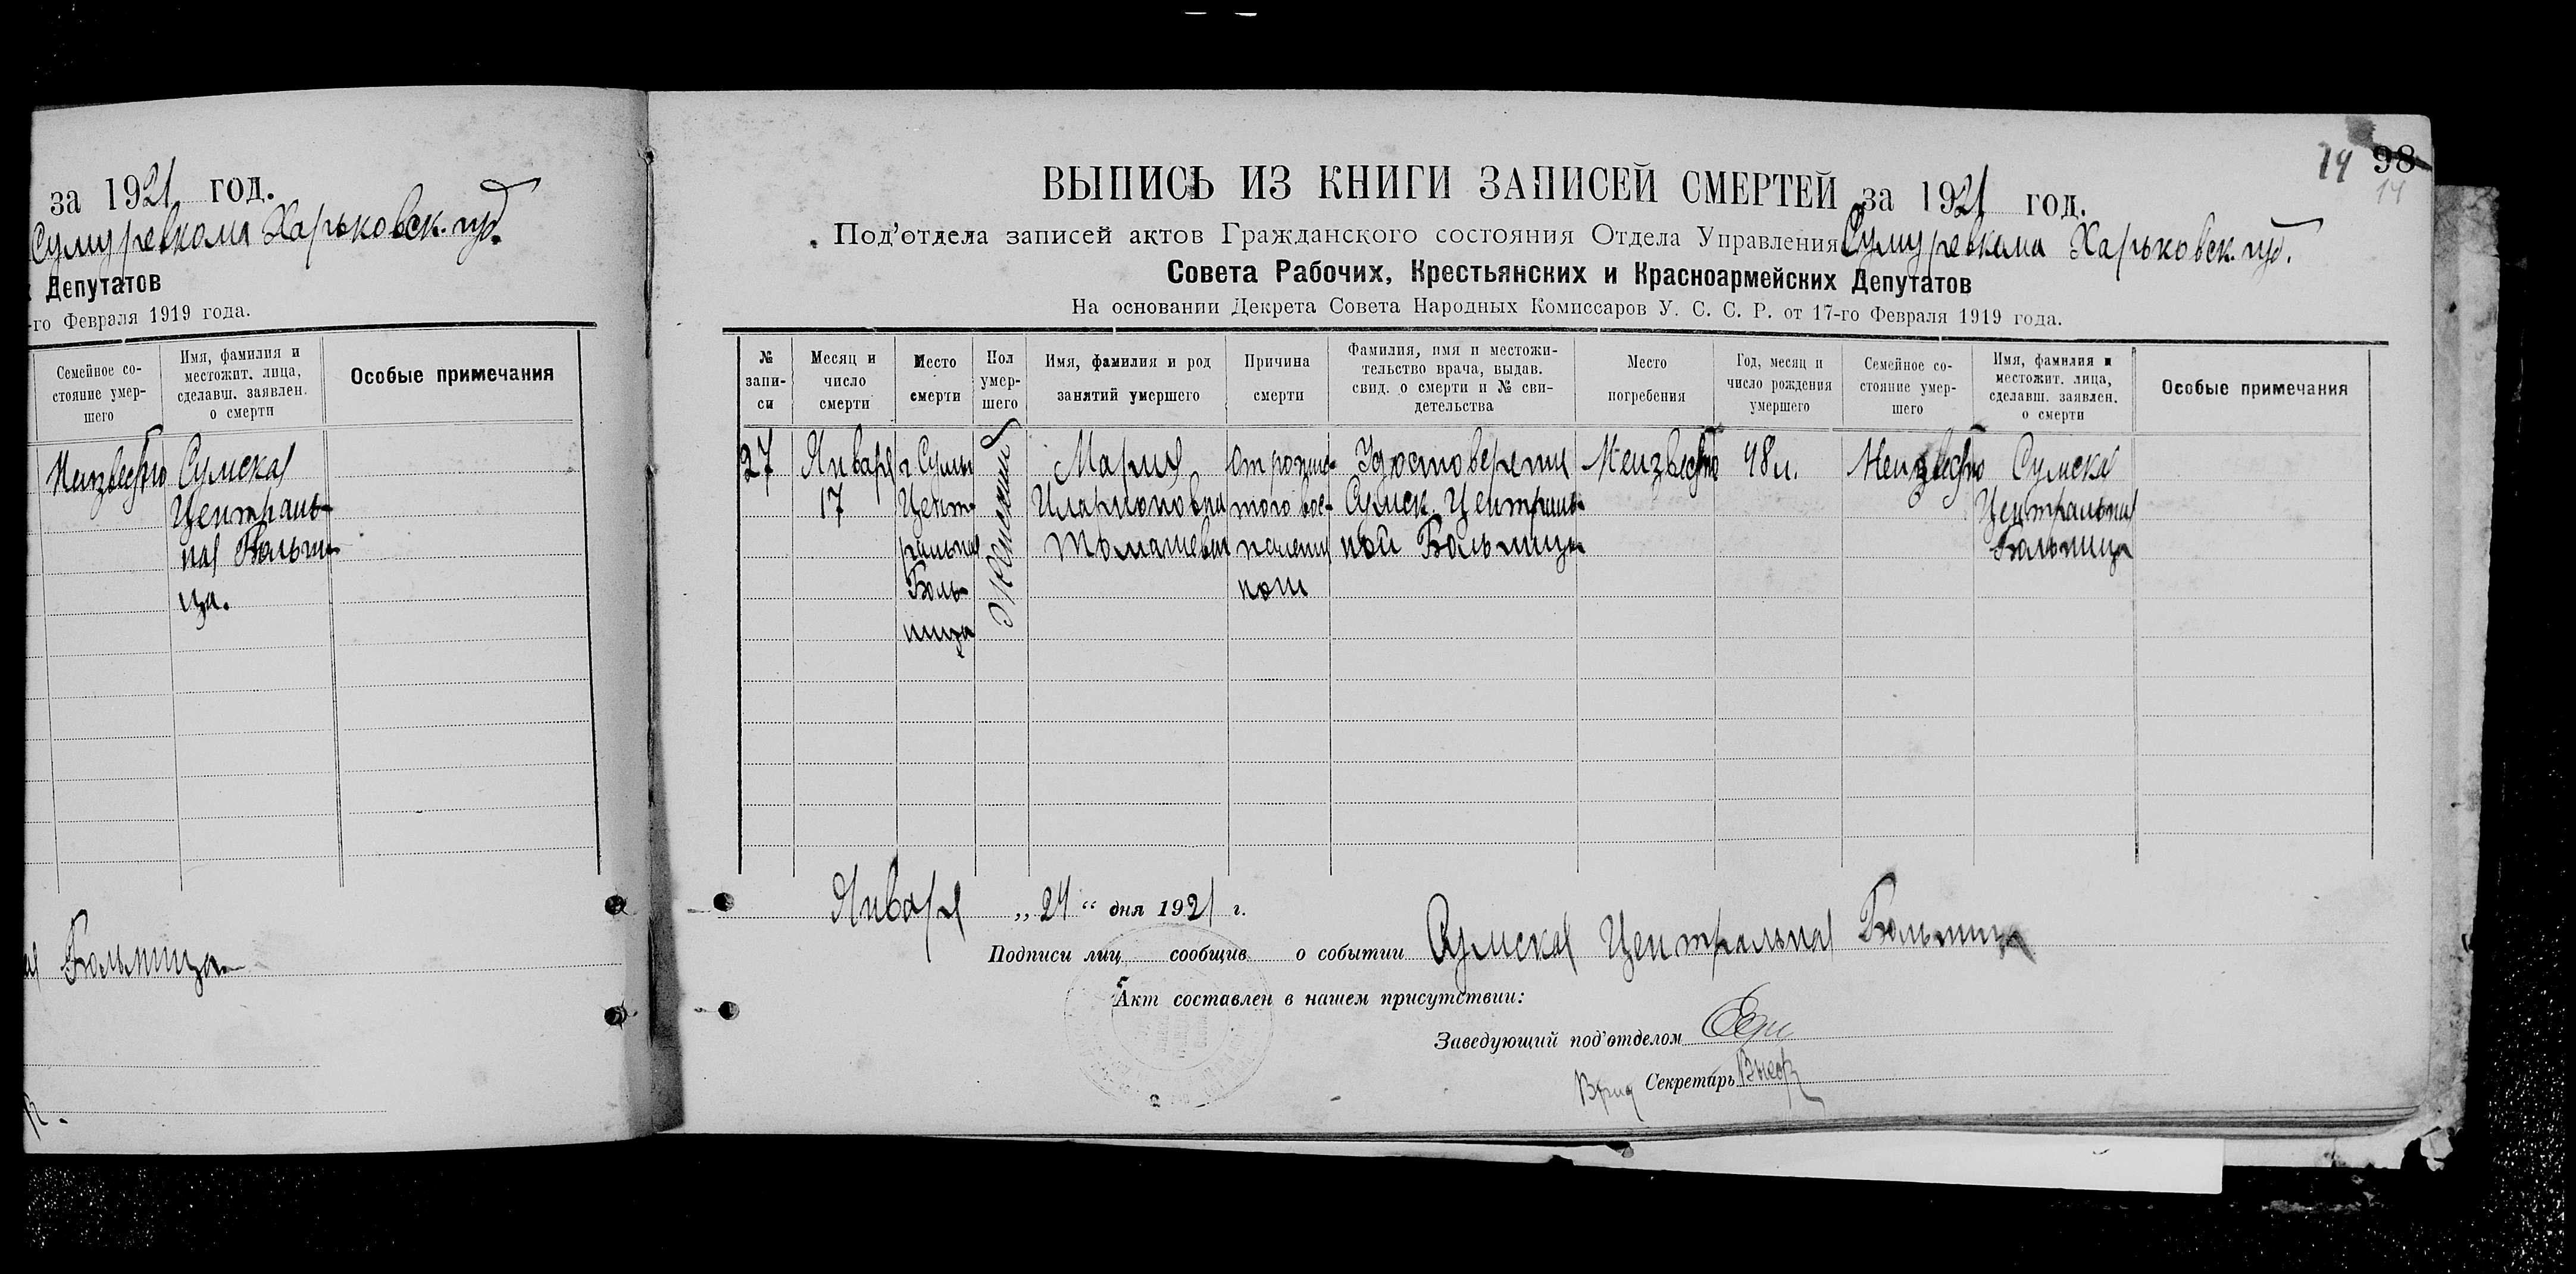 за 1921 год.
Сумуревкома Харьковск. губ.
Депутатов
-го Февраля 1919 года.
Семейное со-
стояние умер-
шего
Имя, фамилия и
местожит. лица,
сделавш. заявлен.
о смерти
Особые примечания
Неизвестно
Сумская
Централь-
ная Больни-
ца.
Больница
14 98
14
ВЫПИСЬ ИЗ КНИГИ ЗАПИСЕЙ СМЕРТЕЙ за 1921 год.
Под'отдела записей актов Гражданского состояния Отдела Управления Сумуревкома Харьковск. губ.
Совета Рабочих, Крестьянских и Красноармейских Депутатов
На основании Декрета Совета Народных Комиссаров У. С. С. Р. от 17-го Февраля 1919 года.
№
запи-
си
Месяц и
число
смерти
Место
смерти
Пол
умер-
шего
Имя, фамилия и род
занятий умершего
Причина
смерти
Фамилия, имя и местожи-
тельство врача, выдав.
свид. о смерти и № сви-
детельства
Место
погребения
Год, месяц и
число рождения
умершего
Семейное со-
стояние умер-
шего
Имя, фамилия и
местожит. лица,
сделавш. заявлен.
о смерти
Особые примечания
27
Января
17
г. Сумы
Цент-
ральная
Боль-
ница
Женский
Мария
Иларионовна
Томашевич
От
того вос-
паления
Удостоверение
Сумск. Централь-
ной Больницы
Неизвестно
48 л.
Неизвестно
Сумская
Центральная
Больница
Января „24“ дня 1921 г.
Подписи лиц сообщив. о событии Сумская Центральная Больница
Акт составлен в нашем присутствии:
Заведующий под'отделом
Врид Секретарь